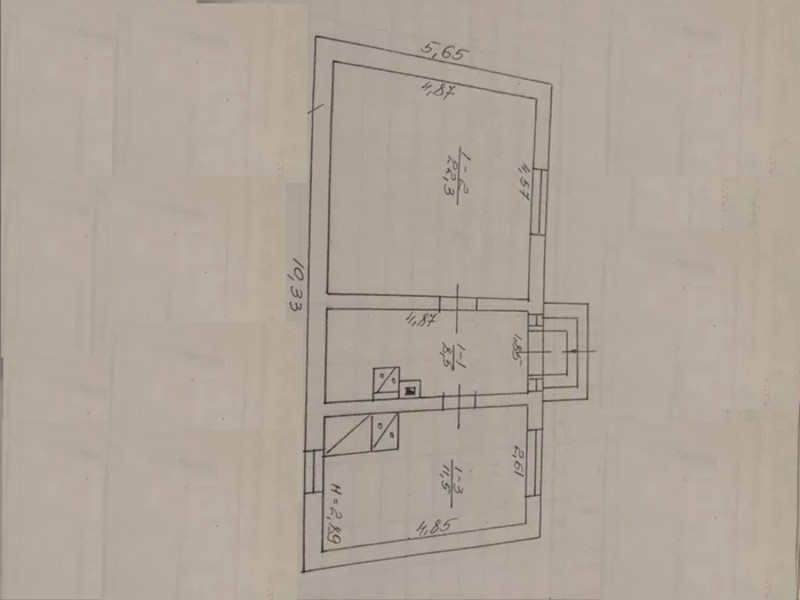 5,65
4,87
1-2
22,3
4,57
10,33
4,87
1-1
8,5
1,85
1-3
11,5
2,61
H=2,89
4,85